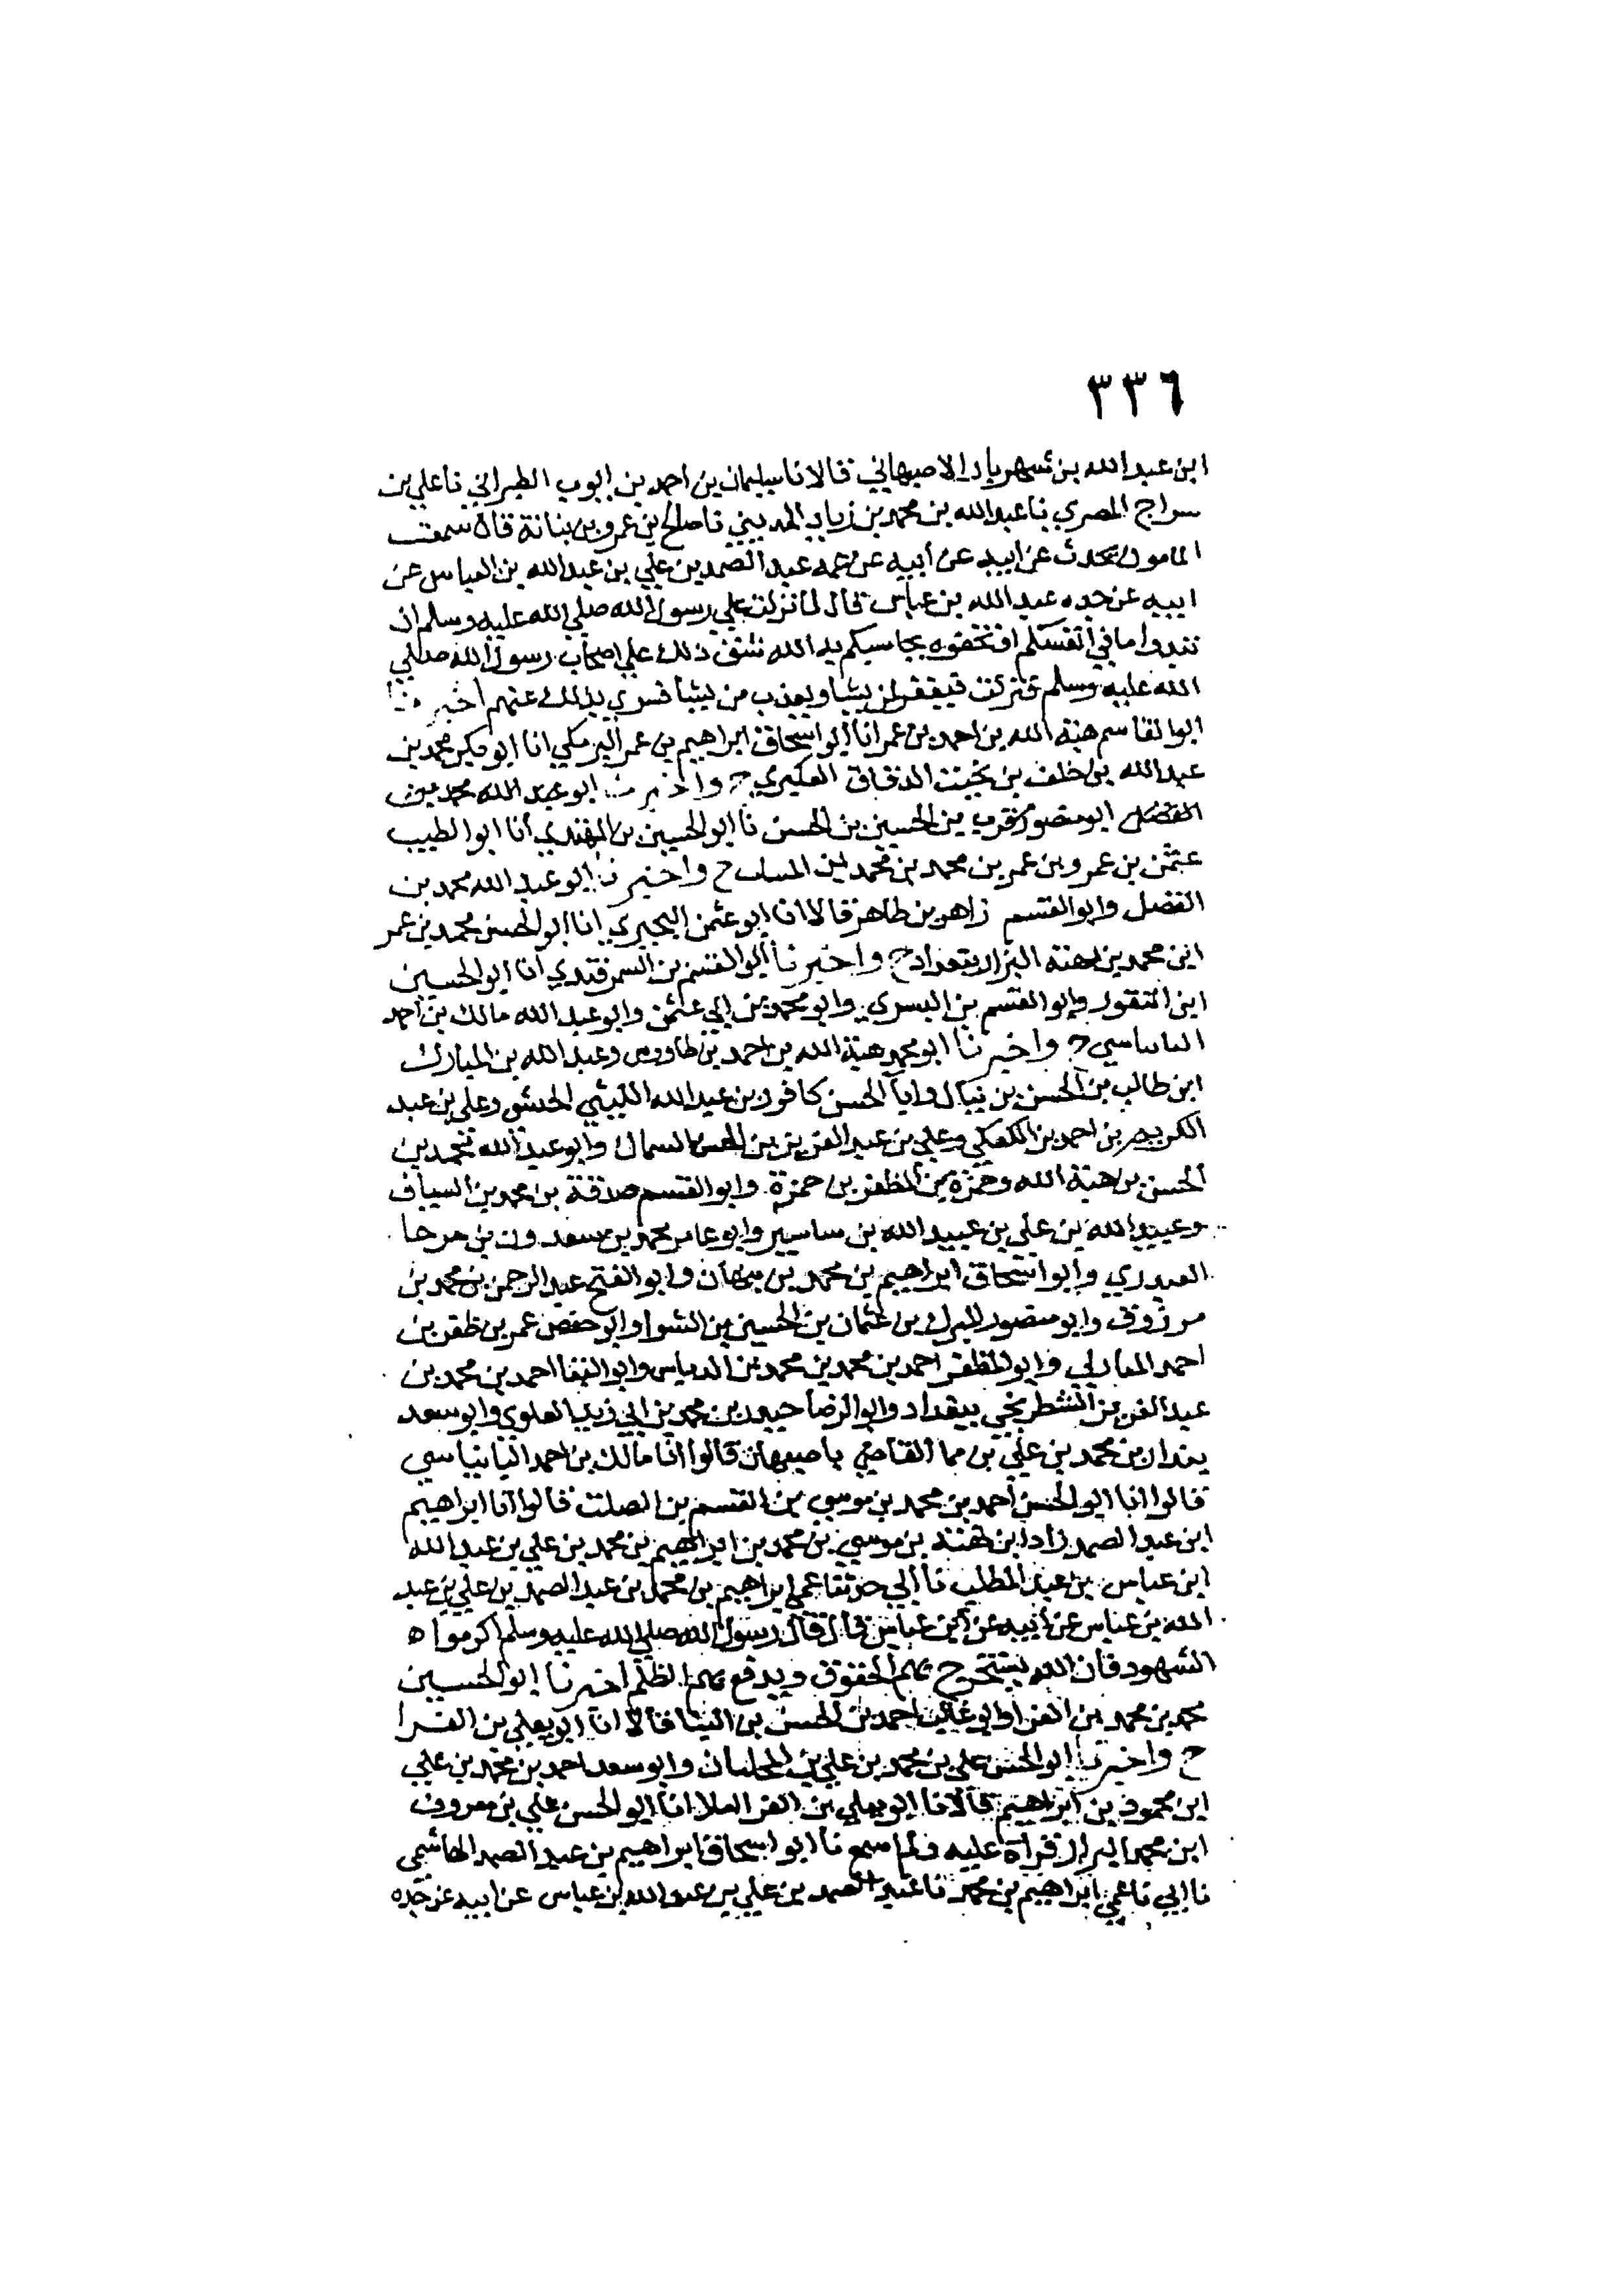 ٣٣٦
ابن عبد الله بن شهريار الاصبهاني قالا نا سليمان بن احمد بن ايوب الطبراني نا علي بن
سراج المصري نا عبد الله بن محمد بن زياد المديني نا صالح بن عمرو بن بنانة قال سمعت
المامون يحدث عن ابيه عن أبيه عن عمه عبد الصمد بن علي بن عبد الله بن العباس عن
ابيه عن جده عبد الله بن عباس قال لما نزلت علي رسول الله صلي الله عليه وسلم ان
تبدوا ما في انفسكم او تخفوه يحاسبكم به الله شق ذلك علي اصحاب رسول الله صلي
الله عليه وسلم فنزلت فيغفر لمن يشا ويعذب من يشا فسري بذلك عنهم اخبرنا
ابوالقاسم هبة الله بن احمد بن عمر انا ابو اسحاق ابراهيم بن عمر البرمكي انا ابو بكر محمد بن
عبد الله بن خلف بن بخيت الدقاق العكبري ح واخبرنا ابو عبد الله محمد بن
الفضل ابو منصور بن الحسين بن الحسن نا ابو الحسين بن المهتدي أنا ابوا لطيب
عثمن بن عمرو بن عمر بن محمد بن محمد بن المساب ح واخبرنا ابو عبد الله محمد بن
الفضل وابو القسم زاهر بن طاهر قالا انا ابو عثمن البحيري انا ابو الحسن محمد بن عمر
ابن محمد بن بهتة البزار ببغداد ح واخبرنا ابو القسم بن السمرقندي أنا ابو الحسين
ابن النقور وابو القسم بن البسري وابو محمد بن ابي عثمن وابو عبد الله مالك بن احمد
البانياسي ح واخبرنا ابو محمد هبة الله بن احمد بن طاووس وعبد الله بن المبارك
ابن طالب بن الحسن بن نبال وابا الحسن كافور بن عبد الله الليثي الحبشي وعلي بن عبد
الكريم بن احمد بن الكعكي وعلي بن عبد العزيز بن الحسن السماك وابو عبد الله محمد بن
الحسن بن هبة الله وحمزة بن المظفر بن حمزة وابو القسم صدقة بن محمد بن السياف
وعبيد الله بن علي بن عبيد الله بن ساسير وابو عامر محمد بن سعدون بن مرجا
العبدري وابو اسحاق ابراهيم بن محمد بن نبهان وابو الفتح عبد الرحمن بن محمد بن
مرزوق وابو منصور بن عثمان بن الحسين بن الشوا وابو حفص عمر بن ظفر بن
احمد المغازلي وابو المظفر احمد بن محمد بن محمد بن الدباس وابو البقا احمد بن محمد بن
عبد العزيز الشطرنجي ببغداد وابو الرضا حيدر بن محمد بن ابي زيد العلوي وابو سعد
بندار بن محمد بن علي بن مما القاضي باصبهان قالوا انا مالك بن احمد البانياسي
قالوا انا ابو الحسن أحمد بن محمد بن موسي بن القسم بن الصلت قالوا انا ابراهيم
ابن عبد الصمد زاد ابن بهتة بن موسي بن محمد بن ابراهيم بن محمد بن علي بن عبد الله
ابن عباس بن عبد المطلب نا ابي حدثنا عمي ابراهيم بن محمد بن عبد الصمد بن علي بن عبد
الله بن عباس عن أبيه عن ابن عباس قال قال رسول الله صلي الله عليه وسلم اكرموا ه
الشهود فان الله يستخرج بهم الحقوق ويدفع بهم الظلم اخبرنا ابو الحسين
محمد بن محمد بن الفرا وابو غالب احمد بن الحسن بن البنا قالا انا ابو يعلي بن الفرا
ح واخبرنا ابو الحسن علي بن محمد بن علي بن وابو سعد احمد بن محمد بن علي
ابن محمود بن ابراهيم قالا نا ابو يعلي بن الفر املا انا ابو الحسن علي بن معروف
ابن محمد البزاز قراة عليه ولم اسمع نا ابو اسحاق ابراهيم بن عبد الصمد الهاشمي
نا ابي نا عمي ابراهيم بن محمد نا عبد الصمد بن علي بن عبد الله بن عباس عن ابيه عن جده